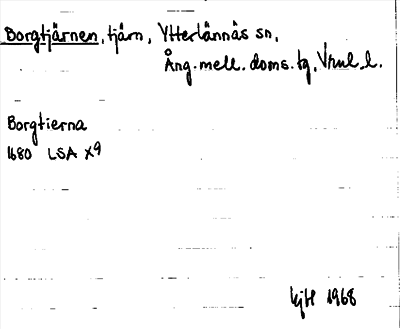 Borgtjärnen, tjärn, Ytterlännäs sn,
Ång. mell. doms. tg, Vrnl. l.
Borgtierna
1680 LSA X9
1968